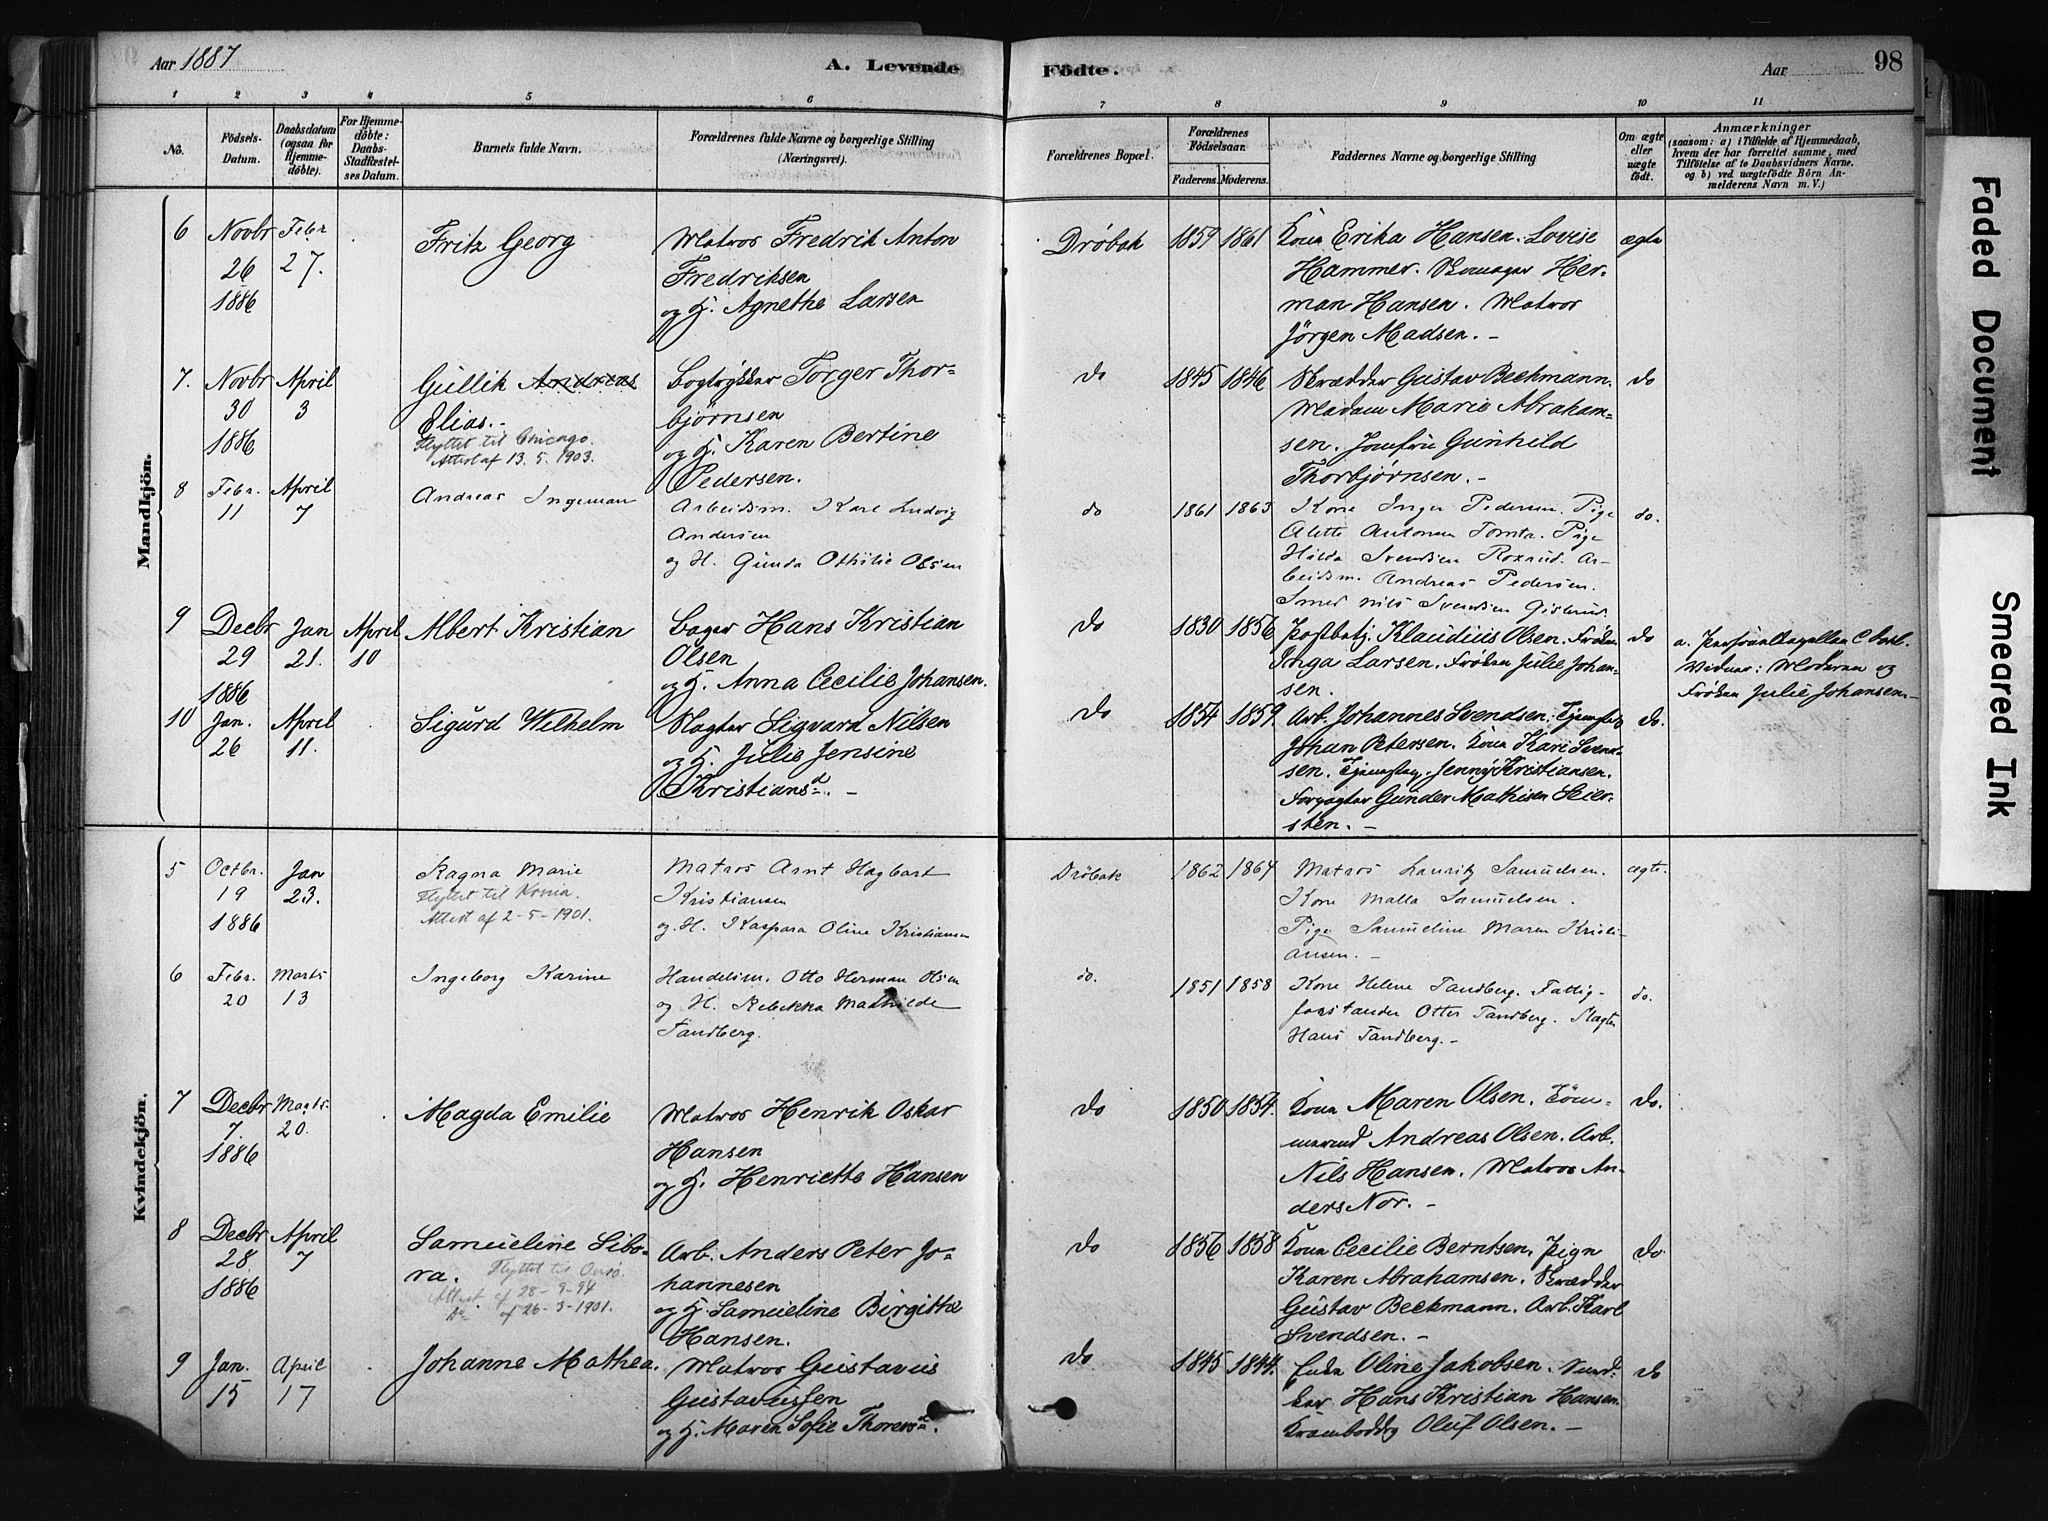 Aar 1887
A. Levende
Födte.
Aar
98
1 2 3 4 5 6 7 8 9 10 11
No.
Födsels-
Datum.
Daabsdatum
(ogsaa for
Hjemme-
döbte).
For Hjemme-
döbte:
Daabs-
Stadfæstel-
ses Datum.
Barnets fulde Navn.
Forældrenes fulde Navne og borgerlige Stilling
(Næringsvei).
Forældrenes Bopæl.
Forældrenes
Födselsaar.
Faderens. Moderens.
Faddernes Navne og borgerlige Stilling
Om ægte
eller
uægte
født.
Anmærkninger
(saasom: a) i Tilfælde af Hjemmedaab,
hvem der har forrettet samme, med
Tilföielse af to Daabsvidners Navne.
og b) ved uægtefödte Börn An-
melderens Navn m. V.)
Mandkjön.
6
Novbr
26
1886
Febr
27.
Fritz Georg
Matros Fredrik Anton
Fredriksen
og H. Agnethe Larsen
Drøbak
1859 1861
Kone Erika Hansen. Lovise
Hammer. Skomager Her-
man Hansen. Matros
Jörgen Madsen. -
ægte
7.
Novbr
30
1886
April
3
Gullik Andreas
Elias. -
Flyttet til Chicago.
Attest af 13. 5. 1903.
Bogtrykker Torger Thor-
bjørnsen
og H. Karen Bertine
Pedersen.
do
1845 1846
Skrædder Gustav Beckmann.
Madam Marie Abraham-
sen. Jomfru Gunhild
Thorbjørnsen. -
do
8
Febr.
11
April
7
Andreas Ingeman
Arbeidsm. Karl Ludvig
Andersen
og H. Gunda Othilie Olsen
do
1861 1863
Kone Inger Pedersen. Pige
Alette Antonsen Tomta. Pige
Hilda Svendsen Roxrud. Ar-
beidsm. Andreas Pedersen.
Smed Nils Svendsen
do.
9
Decbr
29
1886
Jan
21.
April
10
Albert Kristian
Bager Hans Kristian
Olsen
og H. Anna Cecilie Johansen.
do
1830 1856
Postbetj. Klaudius Olsen. Frøken
Inga Larsen. Frøken Julie Johan-
sen.
do
a.
Vidner: Moderen og
Frøken Julie Johansen. -
10
Jan.
26
April
11.
Sigurd Wilhelm
Slagter Sigvard Nilsen
og H. Julie Jensine
Kristiansd. -
do
1854 1859.
Arb. Johannes Svendsen.
Johan Petersen. Kone Kari Svend-
sen. Jenny Kristiansen.
Forpagter Gunder Mathisen Seier-
sten. -
do.
Kvindekjön.
5
Octbr.
19
1886
Jan
23.
Ragna Marie
Flyttet til Kr.nia.
Attest af 2-5-1901.
Matros Arnt Hagbart
Kristiansen
og H. Kaspara Oline Kristiansen
Drøbak
1862 1864
Matros Lauritz Samuelsen.
Kone Malla Samuelsen.
Pige Samueline Maren Kristi-
ansen. -
ægte.
6
Febr.
20
Marts
13
Ingeborg Karine
Handelsm. Otto Herman Olsen
og H. Rebekka Mathilde
Tandberg.
do.
1851 1858
Kone Helene Tandberg. Fattig-
forstander Otter Tandberg. Slagter
Hans Tandberg. -
do.
7
Decbr
7.
1886
Marts.
20.
Magda Emilie
Matros Henrik Oskar
Hansen
og H. Henriette Hansen
do
1850 1854.
Kone Maren Olsen. Töm-
mermd Andreas Olsen. Arb.
Nils Hansen. Matros An-
ders Nor. -
do.
8
Decbr
28.
1886
April
7
Samueline Sibo-
ra.
Flyttet til Onsø.
Attest af 28-9-94
Do af 26-3-1901.
Arb. Anders Peter Jo-
hannesen
og H. Samueline Birgitte
Hansen.
do
1856 1858
Kone Cecilie Berntsen. Pige
Karen Abrahamsen. Skrædder
Gustav Beckmann. Arb. Karl
Svendsen. -
do
9
Jan.
15
April
17
Johanne Mathea.
Matros Gustavus
Gustavussen
og H. Maren Sofie Thoresd.
do
1845 1844.
Enke Oline Jakobsen. Sned-
ker Hans Kristian Hansen.
Oluf Olsen. -
do
Faded Document
Smeared Ink